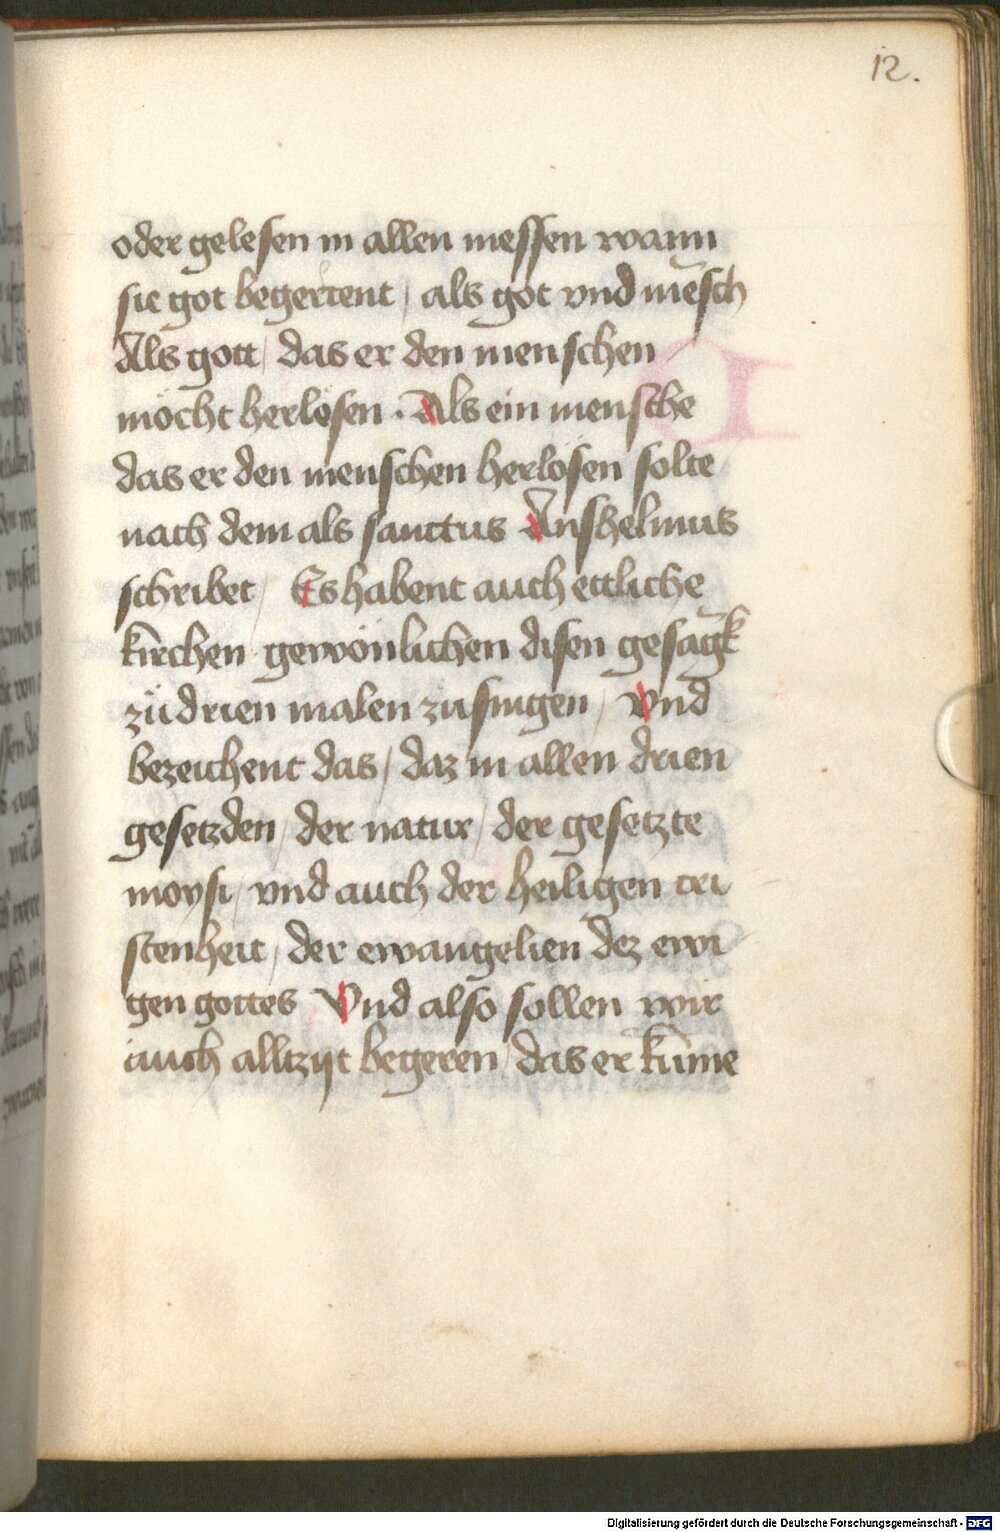 12.
oder gelesen in allen messen wann
sie got begertent / als got vnd mēsch
Als gott / das er den menschen
möcht herlösen . Als ein mensche
das er den menschen herlösen solte
nach dem als sanctus Anshelmus
schribet / Es habent auch ettliche
kirchen gewönlichen disen gesāgk
zů drien malen zů singen / Vnd
bezeichent das / daz in allen drien
gesetzden / der natur / der gesetzte
moysi / vnd auch der heiligen cri
stenheit / der ewangelien dez ewi
gen gottes Vnd also sollen wir
auch alltzijt begeren / das er kūme
Digitalisierung gefördert durch die Deutsche Forschungsgemeinschaft - DFG